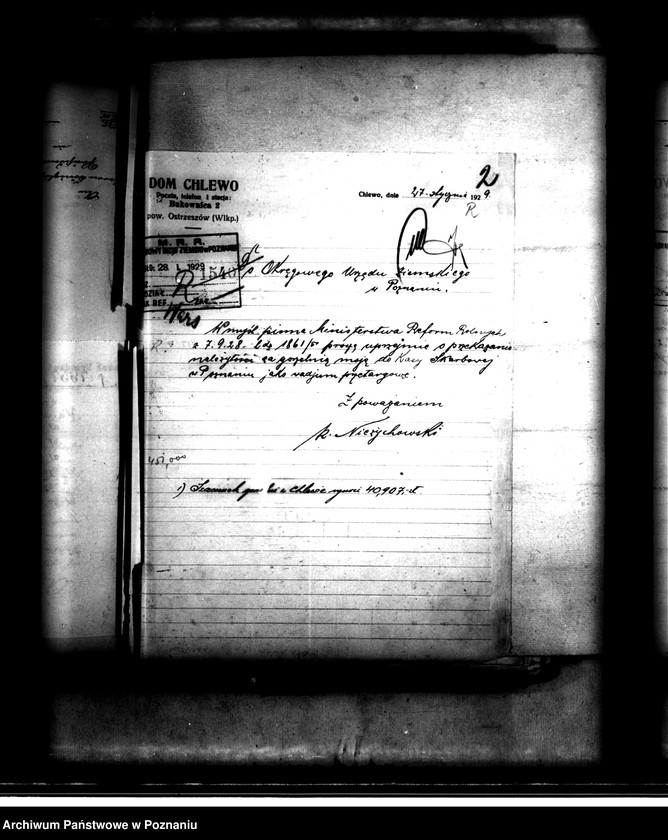 2
DOM CHLEWO
Poczta, telefon i stacja:
Bukownica 2
pow. Ostrzeszów (Wlkp.)
Chlewo, dnia 27. stycznia 1929.
R
M. R. R.
URZĄD ZIEMSKI w POZNANIU
28. I. 1929
1540
R
Wars
Do Okręgowego Urzędu Ziemskiego
w Poznaniu.
W myśl pisma Ministerstwa Reform Rolnych
z 7.9.28. L.dz 1861/ proszę uprzejmie o przekazanie
należytości za gorzelnię moją do Kasy Skarbowej
w Poznaniu jako vadjum przetargowe.
Z poważaniem
K. Niezychowski
451,000
1) Szacunek w Chlewie wynosi 40,907.- zł
Archiwum Państwowe w Poznaniu